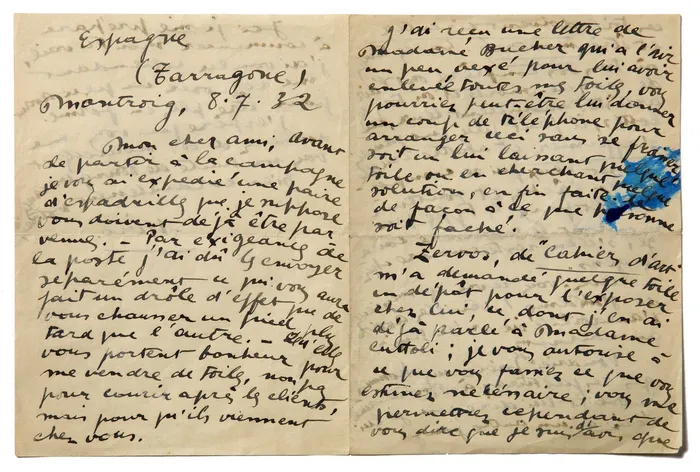 Espagne
(Tarragone)
Montroig, 8.7.32
Mon cher ami, avant
de partir à la campagne
je vous ai expédié une paire
d'espadrilles que je suppose
vous doivent déjà être par
venues. — Par exigeance de
la poste j'ai dû les envoyer
separément ce qui vous aura
fait un drôle d'effet que de
vous chausser un pied plus
tard que l'autre. — Qu'elles
vous portent bonheur pour
me vendre de toiles, non pas
pour courir après les clients,
mais pour qu'ils viennent
chez vous.
J'ai reçu une lettre de
Madame Bucher qui a l'air
un peu vexé pour lui avoir
enlevée toutes mes toiles, vous
pourriez peut-être lui donner
un coup de téléphone pour
arranger ceci sans se fâcher
soit un lui laissant quelque
toile ou en cherchant quelque
solution, en fin faites
de façon à ce que personne
soit faché.
Zervos, de "Cahiers d'art"
m'a demandé quelque toile
en dépôt pour l'exposer
chez lui, ce dont j'en ai
déjà parlé à Madame
Cuttoli; je vous autorise à
ce que vous fassiez ce que vous
estimez nécéssaire; vous me
permettrez cependant de
vous dire que je suis d'avis que